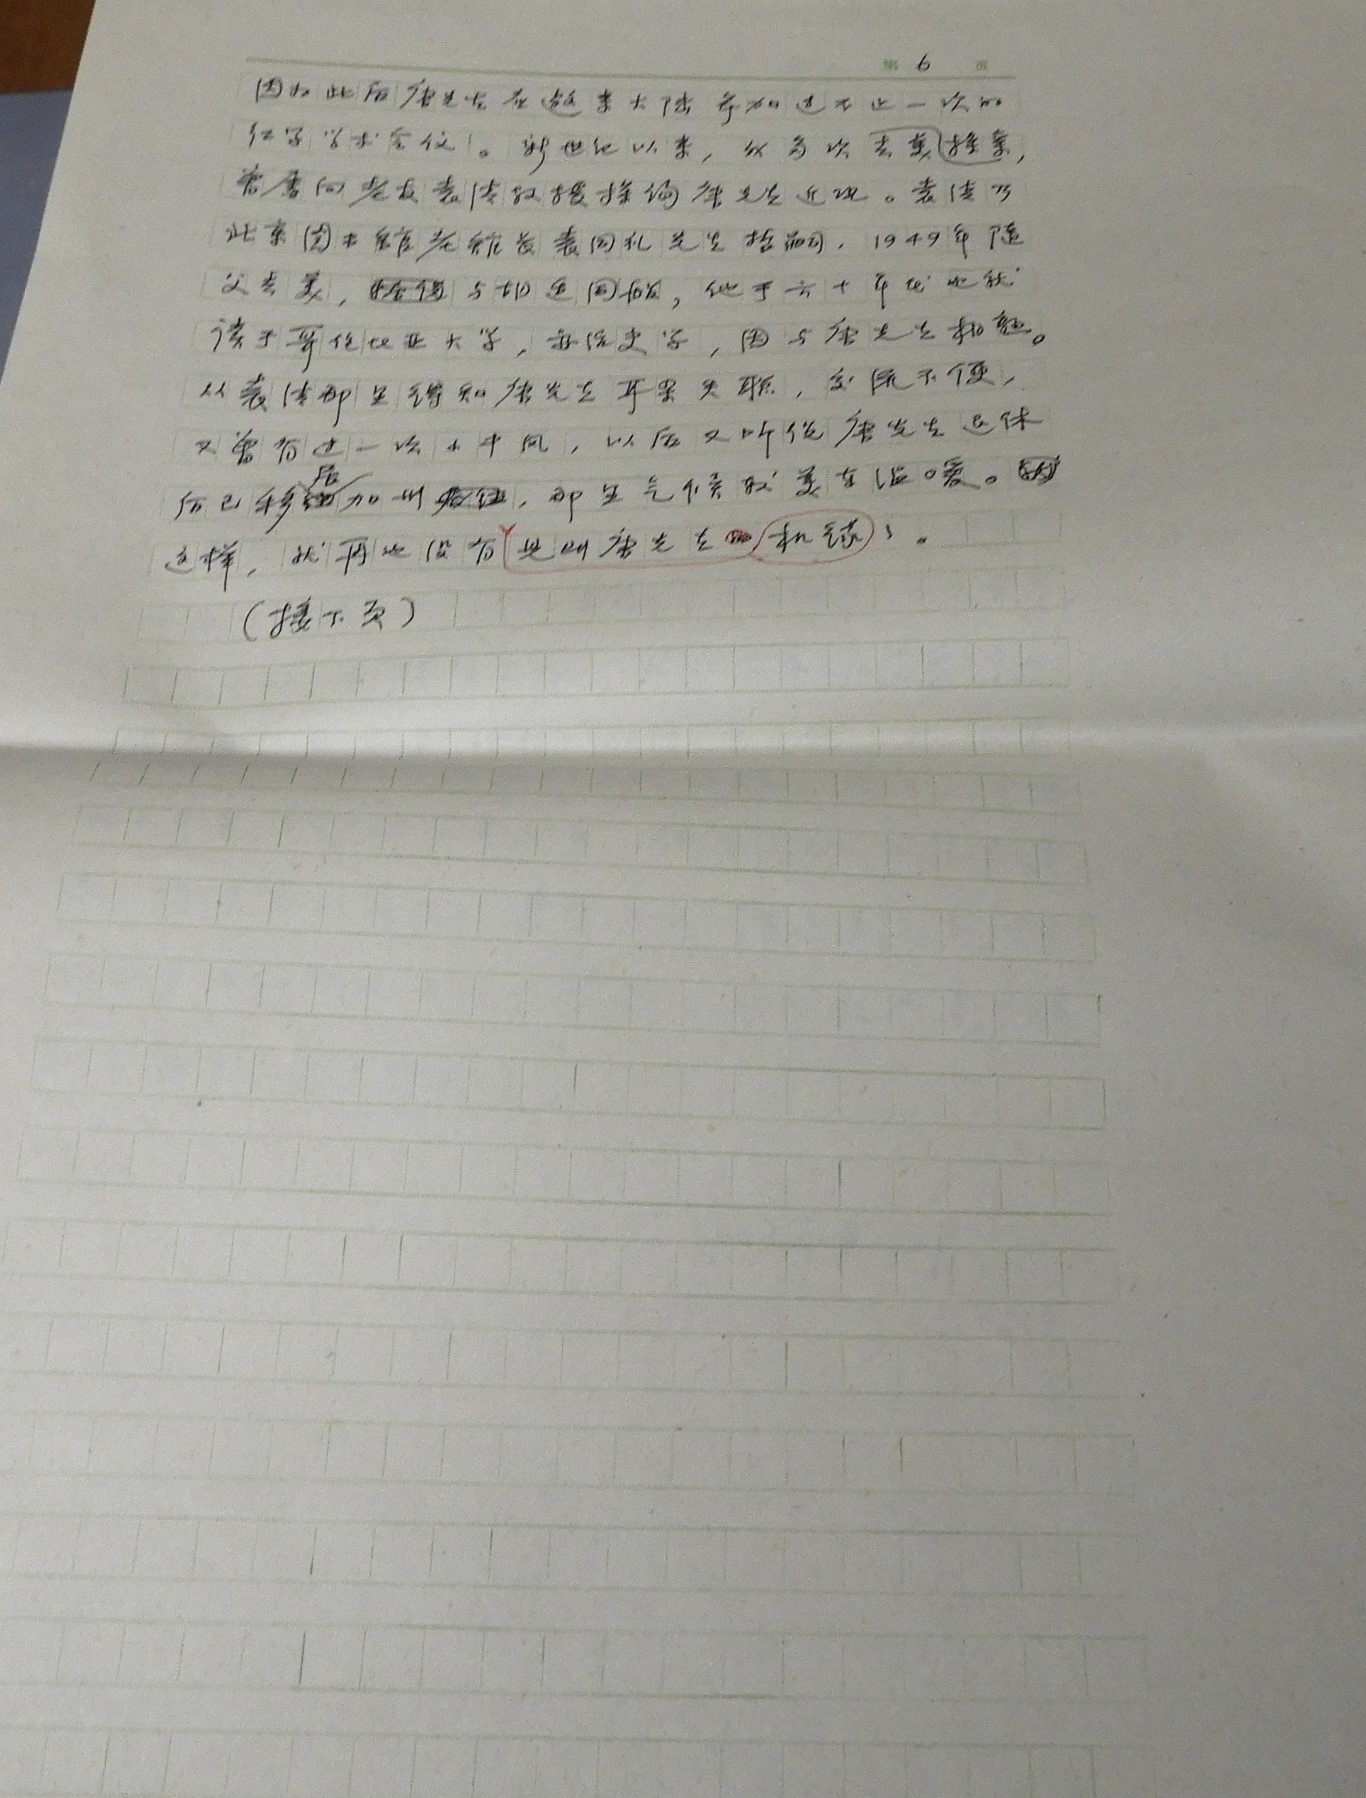 第 6 页
因为此后唐先生在赴京大陆参加过不止一次的
红学学术会议。新世纪以来,我多次去美探亲,
曾屡向老友袁清教授探询唐先生近况。袁清乃
北京图书馆老馆长袁同礼先生哲嗣,1949年随
父去美,与胡适同船,他于六十年代也就
读于哥伦比亚大学,亦治史学,因与唐先生相熟。
从袁清那里得知唐先生耳聋失聪,交流不便,
又曾有过一次小中风,以后又听说唐先生退休
后已移居加州,那里气候较美东温暖。
这样,就再也没有见到唐先生的机缘了。
(接下页)